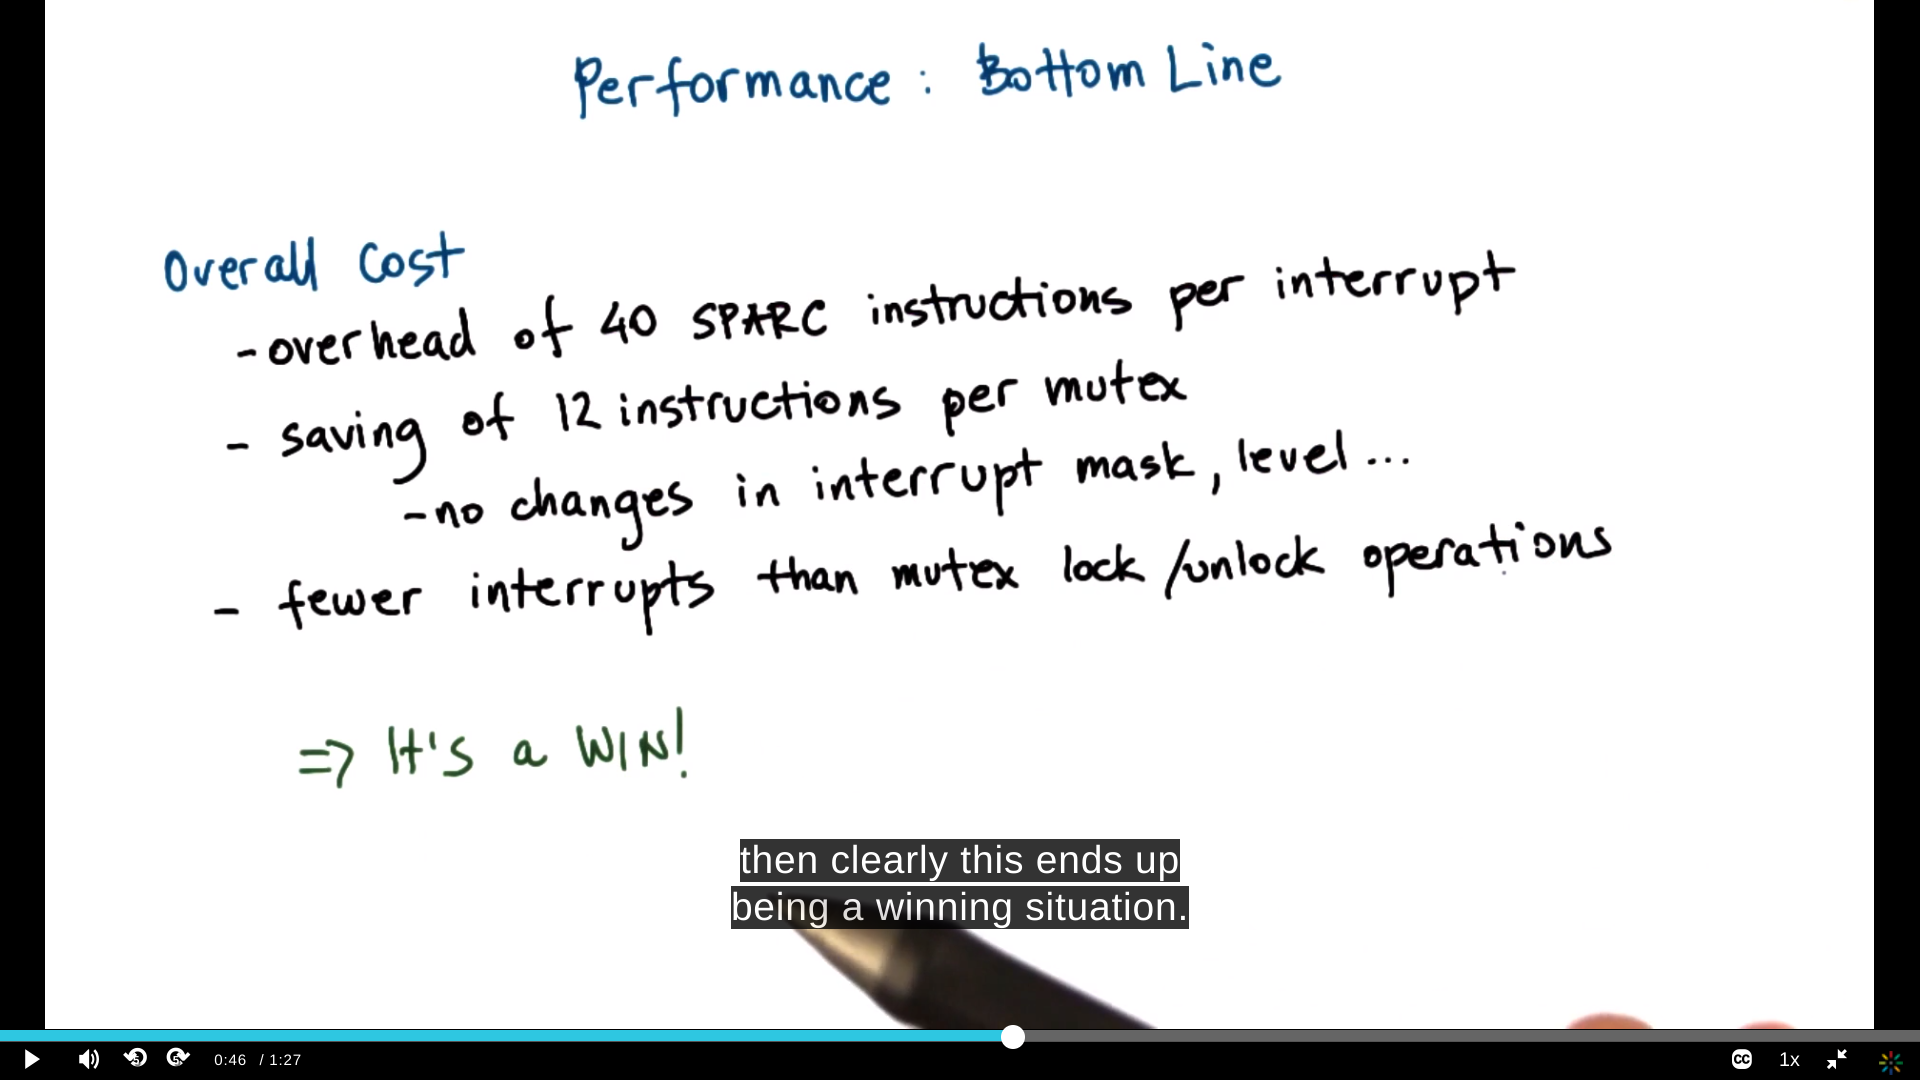 Performance: Bottom Line
Overall Cost
- overhead of 40 SPARC instructions per interrupt
- saving of 12 instructions per mutex
- no changes in interrupt mask, level...
- fewer interrupts than mutex lock/unlock operations
=> It's a WIN!
then clearly this ends up
being a winning situation.
5 5 0:46 / 1:27 CC 1x